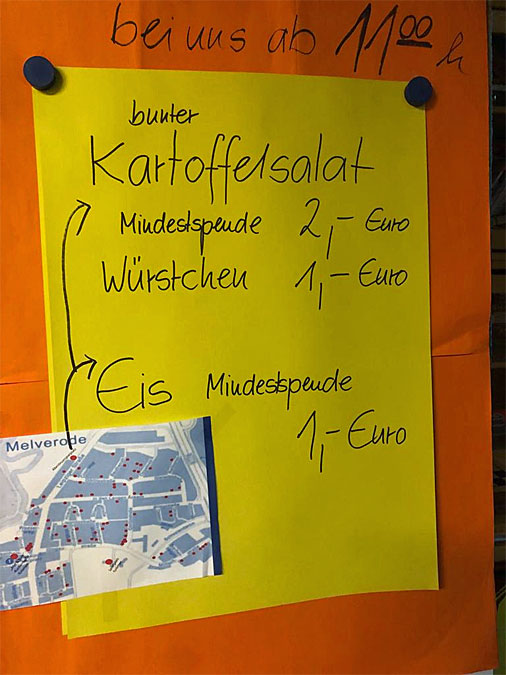 bei uns ab 11⁰⁰ h
bunter
Kartoffelsalat
Mindestspende 2,- Euro
Würstchen 1,- Euro
Eis Mindestspende
1,- Euro
Melverode